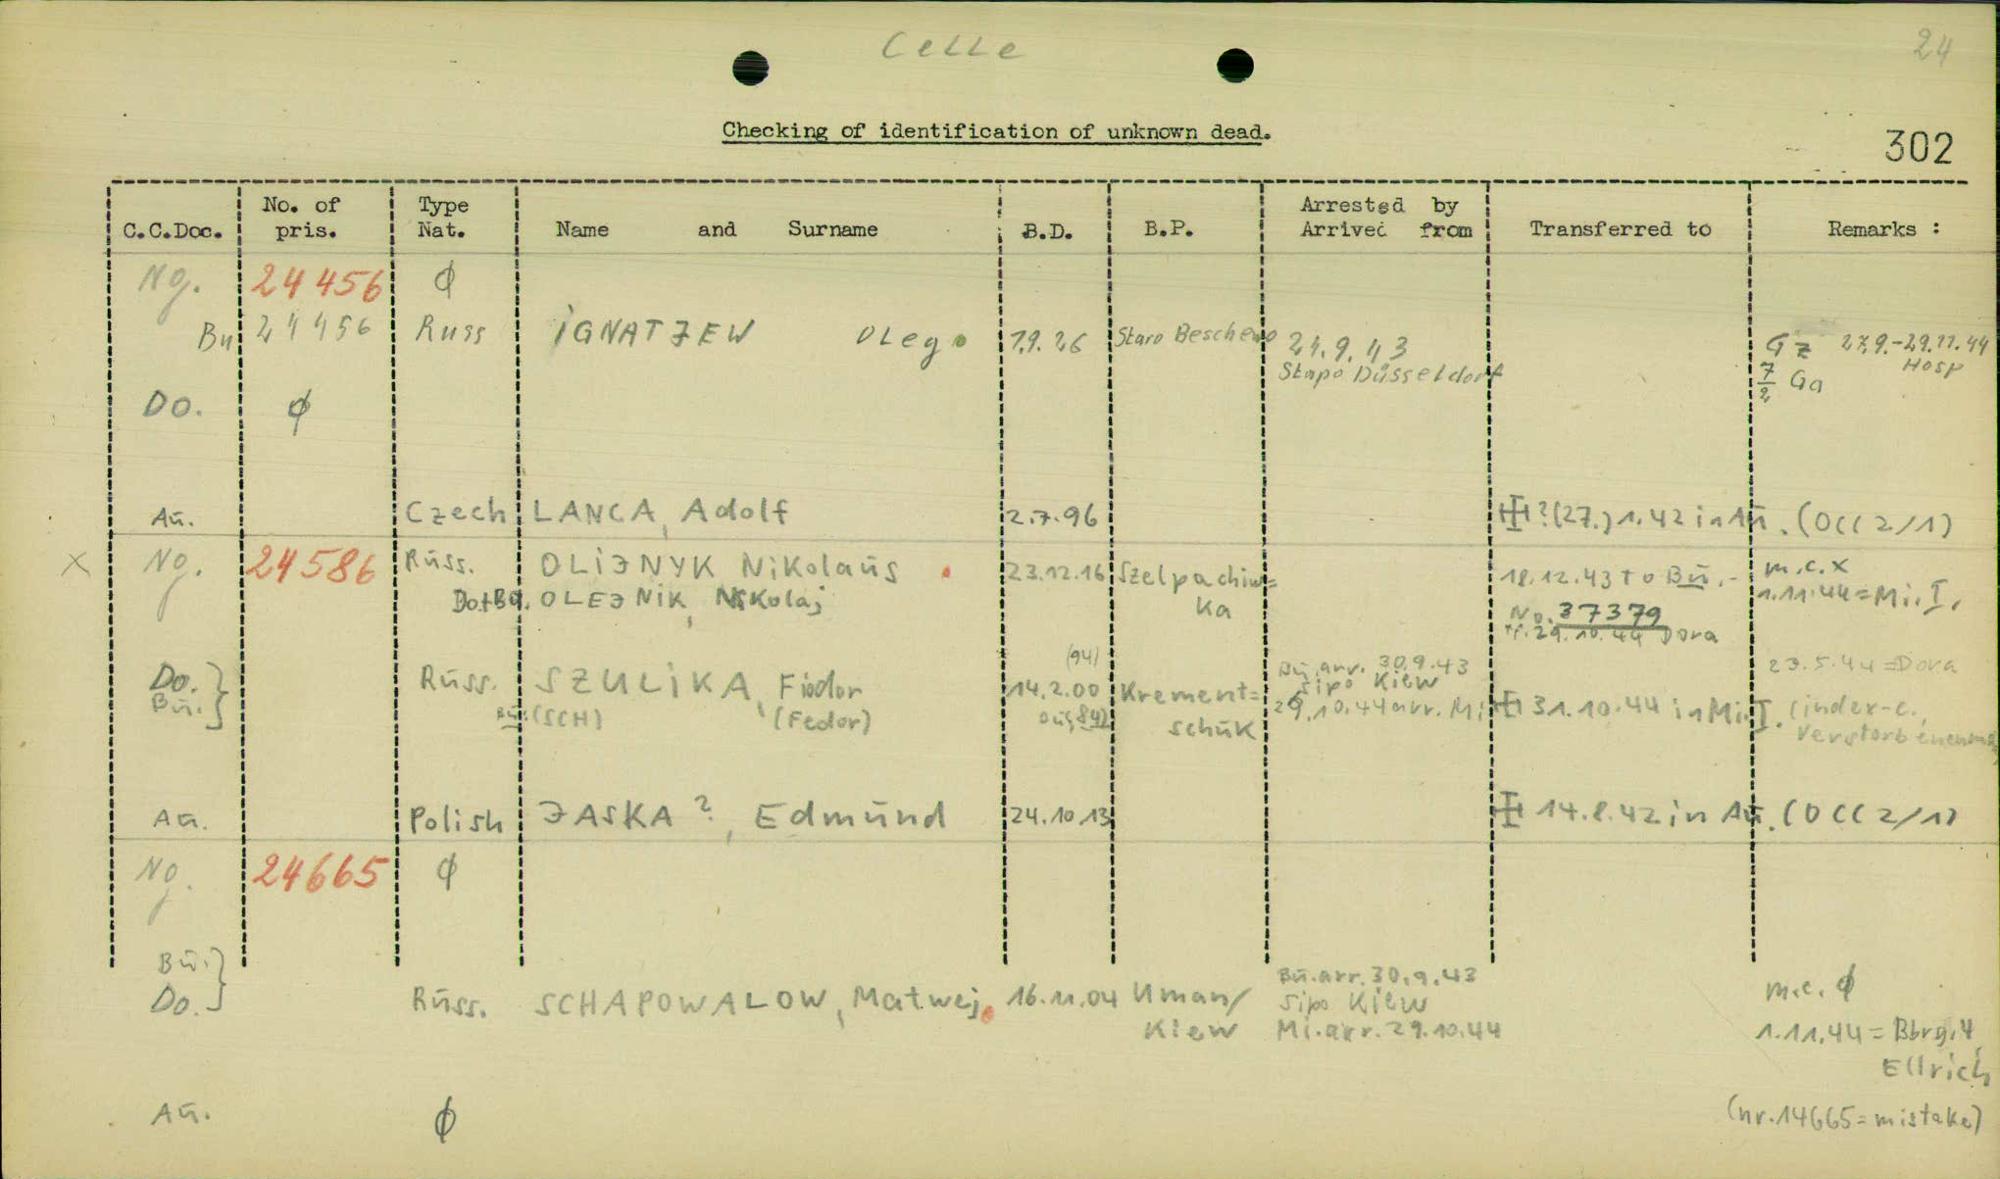 Celle
24
Checking of identification of unknown dead.
302
C.C.Doc. No. of pris. Type Nat. Name and Surname B.D. B.P. Arrested by Arrived from Transferred to Remarks :
Ng. 24 456 ϕ
Bu 24456 Russ IGNATJEW Oleg 7.9.26 Staro Beschewo 21.9.43 Gz 27.9.-29.11.44
Stapo Düsseldorf 7/2 Ga Hosp
Do. ϕ
Aū. Czech LANCA, Adolf 2.7.96 ?(27.)1.42 in Aū. (OCC 2/1)
X Ng. 24586 Rūss. OLIJNYK Nikolaūs 23.12.16 Szelpachiw= 18.12.43 to Bū.- m.c.x
Do+Bū. OLEJNIK, Nikolaj ka No. 37379 1.11.44=Mi.I.
tr. 29.10.44 Dora
Do. Bū. } Rūss. SZULIKA, Fiodor (94) 14.2.00 Krement= Bū.arr. 30.9.43 23.5.44=Dora
Bū: (SCH) (Fedor) schūk Sipo Kiew
29.10.44 arr. Mi 31.10.44 in Mi.I. (index-c.,
Aū. Polish JASKA?, Edmūnd 24.10.13 14.8.42 in Aū. (OCC 2/1)
Ng. 24665 ϕ
Bū. Do. } Rūss. SCHAPOWALOW, Matwej 16.11.04 Uman/ Bū.arr. 30.9.43 m.c. ϕ
Kiew Sipo Kiew
Mi.arr. 29.10.44 1.11.44 = Bbrg.4
Ellrich
Aū. ϕ (nr.14665=mistake)